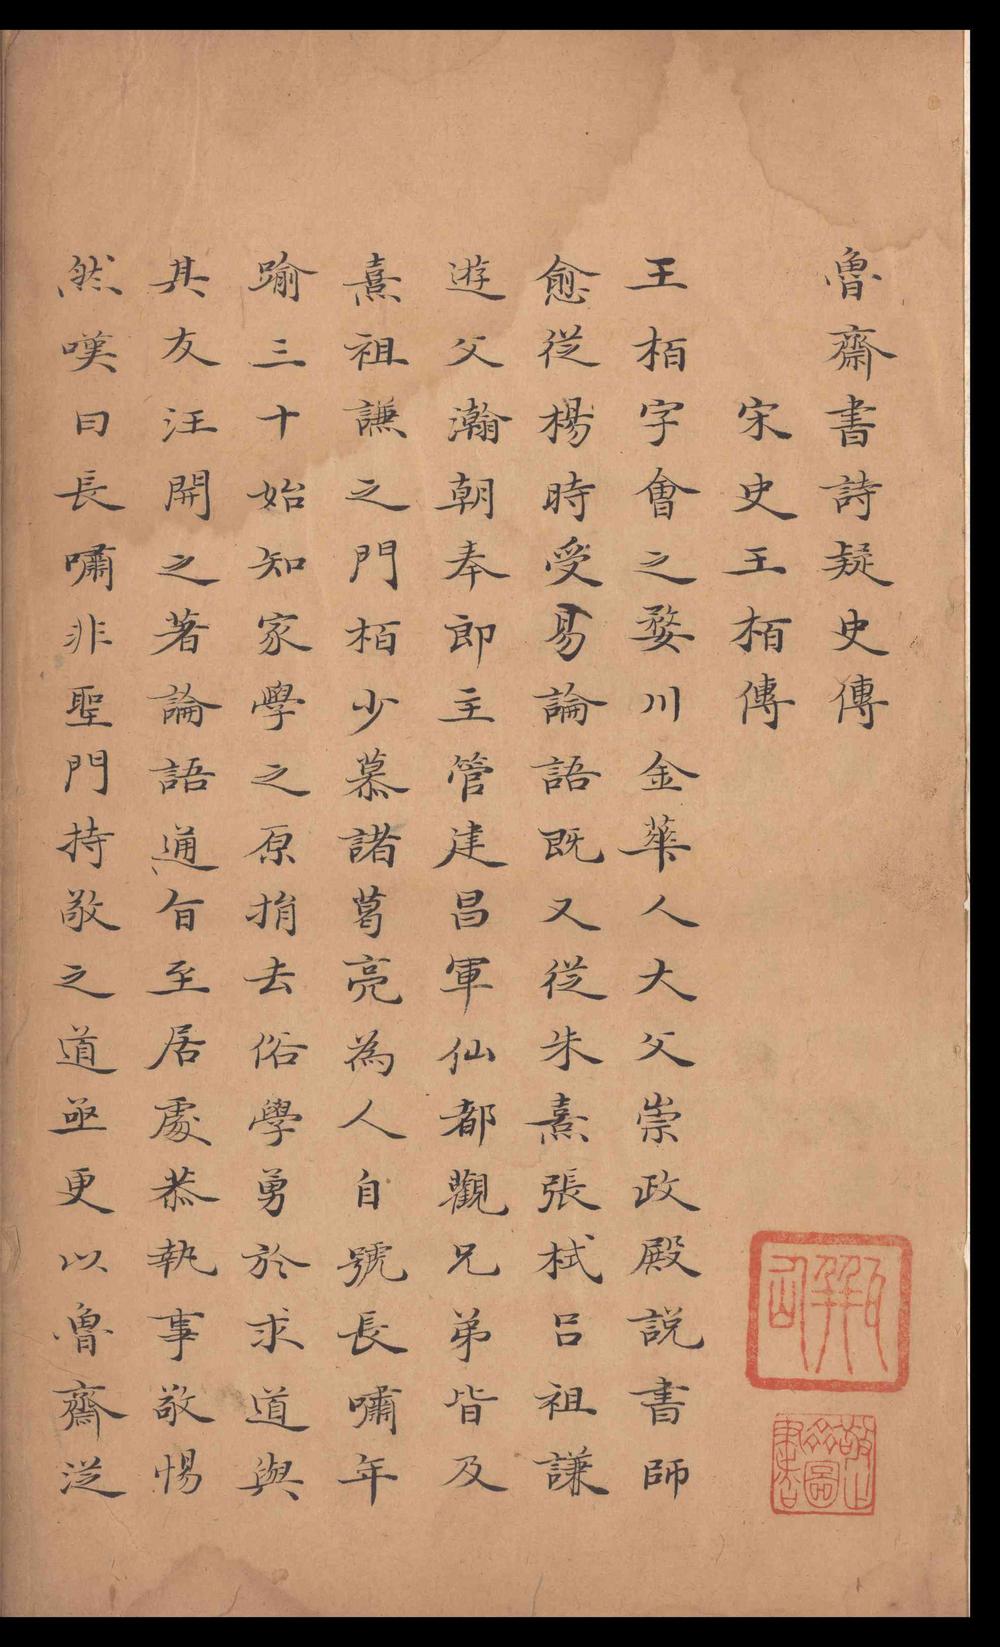 魯齋書詩疑史傳
宋史王栢傳
王栢字會之婺川金華人大父崇政殿說書師
愈從楊時受易論語既又從朱熹張栻呂祖謙
遊父瀚朝奉郎主管建昌軍仙都觀兄弟皆及
熹祖謙之門栢少慕諸葛亮為人自號長嘯年
踰三十始知家學之原捐去俗學勇於求道與
其友汪開之著論語通旨至居處恭執事敬惕
然嘆曰長嘯非聖門持敬之道亟更以魯齋從